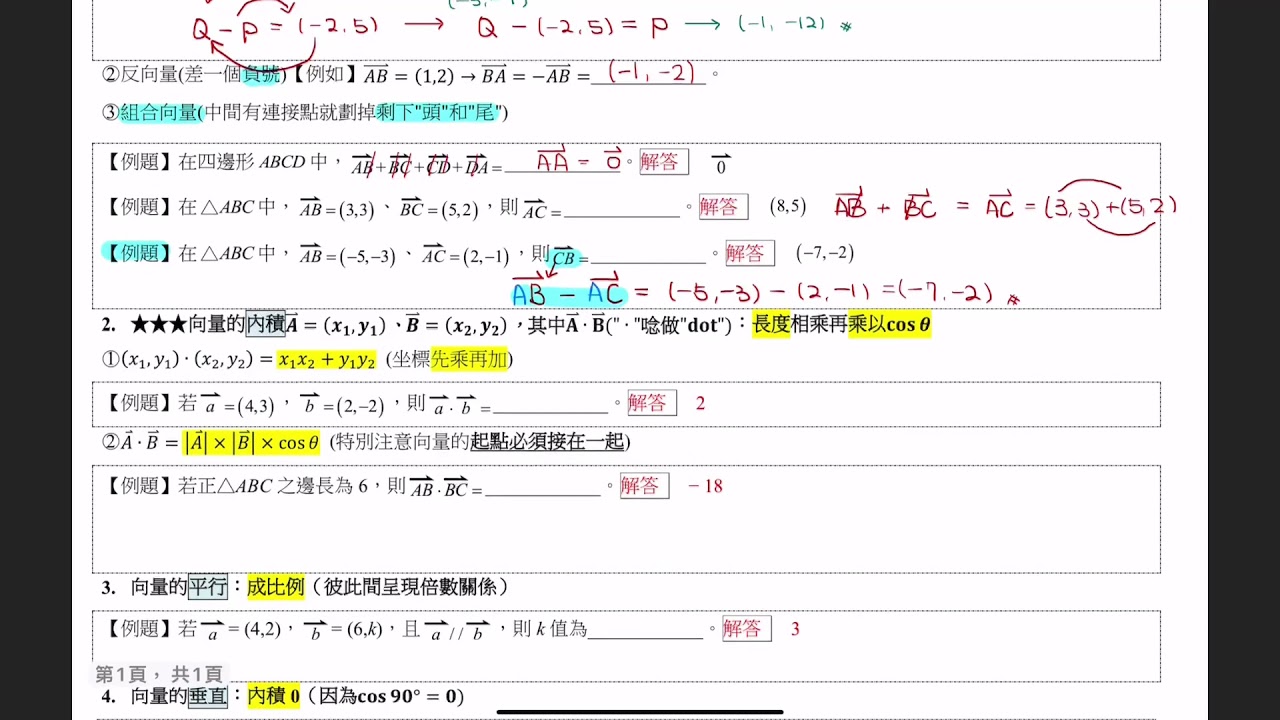 Q - P = (-2,5) → Q - (-2,5) = P → (-1,-12) *
②反向量(差一個負號)【例如】AB = (1,2) → BA = −AB = (-1,-2) 。
③組合向量(中間有連接點就劃掉剩下"頭"和"尾")
【例題】在四邊形 ABCD 中，AB+BC+CD+DA= AA = 0 。解答 0
【例題】在△ABC 中，AB=(3,3)、BC=(5,2)，則 AC=。解答 (8,5) AB + BC = AC = (3,3)+(5,2)
【例題】在△ABC 中，AB=(−5,−3)、AC=(2,−1)，則 CB=。解答 (−7,−2)
AB - AC = (-5,-3) - (2,-1) = (-7,-2) *
2. ★★★向量的內積A = (x₁,y₁)、B = (x₂,y₂)，其中A · B("·"唸做"dot")：長度相乘再乘以cos θ
①(x₁,y₁) · (x₂,y₂) = x₁x₂ + y₁y₂ (坐標先乘再加)
【例題】若 a =(4,3)，b =(2,−2)，則 a · b =。解答 2
②A · B = |A| × |B| × cos θ (特別注意向量的起點必須接在一起)
【例題】若正△ABC 之邊長為 6，則 AB · BC=。解答 −18
3. 向量的平行：成比例（彼此間呈現倍數關係）
【例題】若 a = (4,2)，b = (6,k)，且 a // b，則 k 值為。解答 3
第1頁，共1頁
4. 向量的垂直：內積 0（因為cos 90° = 0)